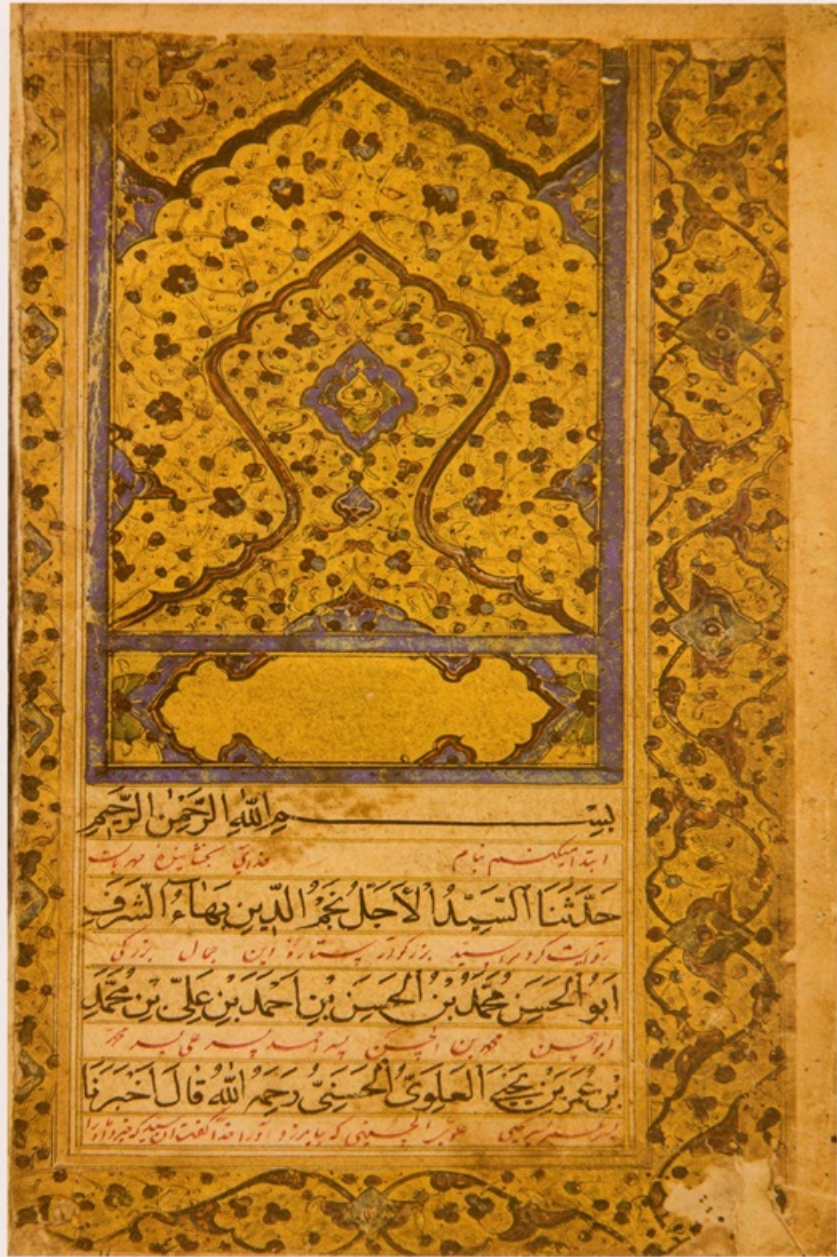 بِسْمِ اللهِ الرَّحْمٰنِ الرَّحِيمِ
ابتدا میکنم بنام خدای بخشاینده مهربان
حَدَّثَنَا السَّيِّدُ الْأَجَلُّ نَجْمُ الدِّينِ بَهَاءُ الشَّرَفِ
روایت کرد مرا سید بزرکوارتر ستارهٔ دین جمال بزرکی
اَبُو الْحَسَنِ مُحَمَّدُ بْنُ الْحَسَنِ بْنِ اَحْمَدَ بْنِ عَلِيِّ بْنِ مُحَمَّدِ
ابوالحسن محمد بن الحسن پسر احمد پسر علی پسر محمد
بْنِ عُمَرَ بْنِ يَحْيَى الْعَلَوِيُّ الْحُسَيْنِيُّ رَحِمَهُ اللهُ قَالَ اَخْبَرَنَا
پسر عمر پسر یحیی علوی الحسینی که بیامرزد او را خدا گفت آن سید که خبر داد ما را